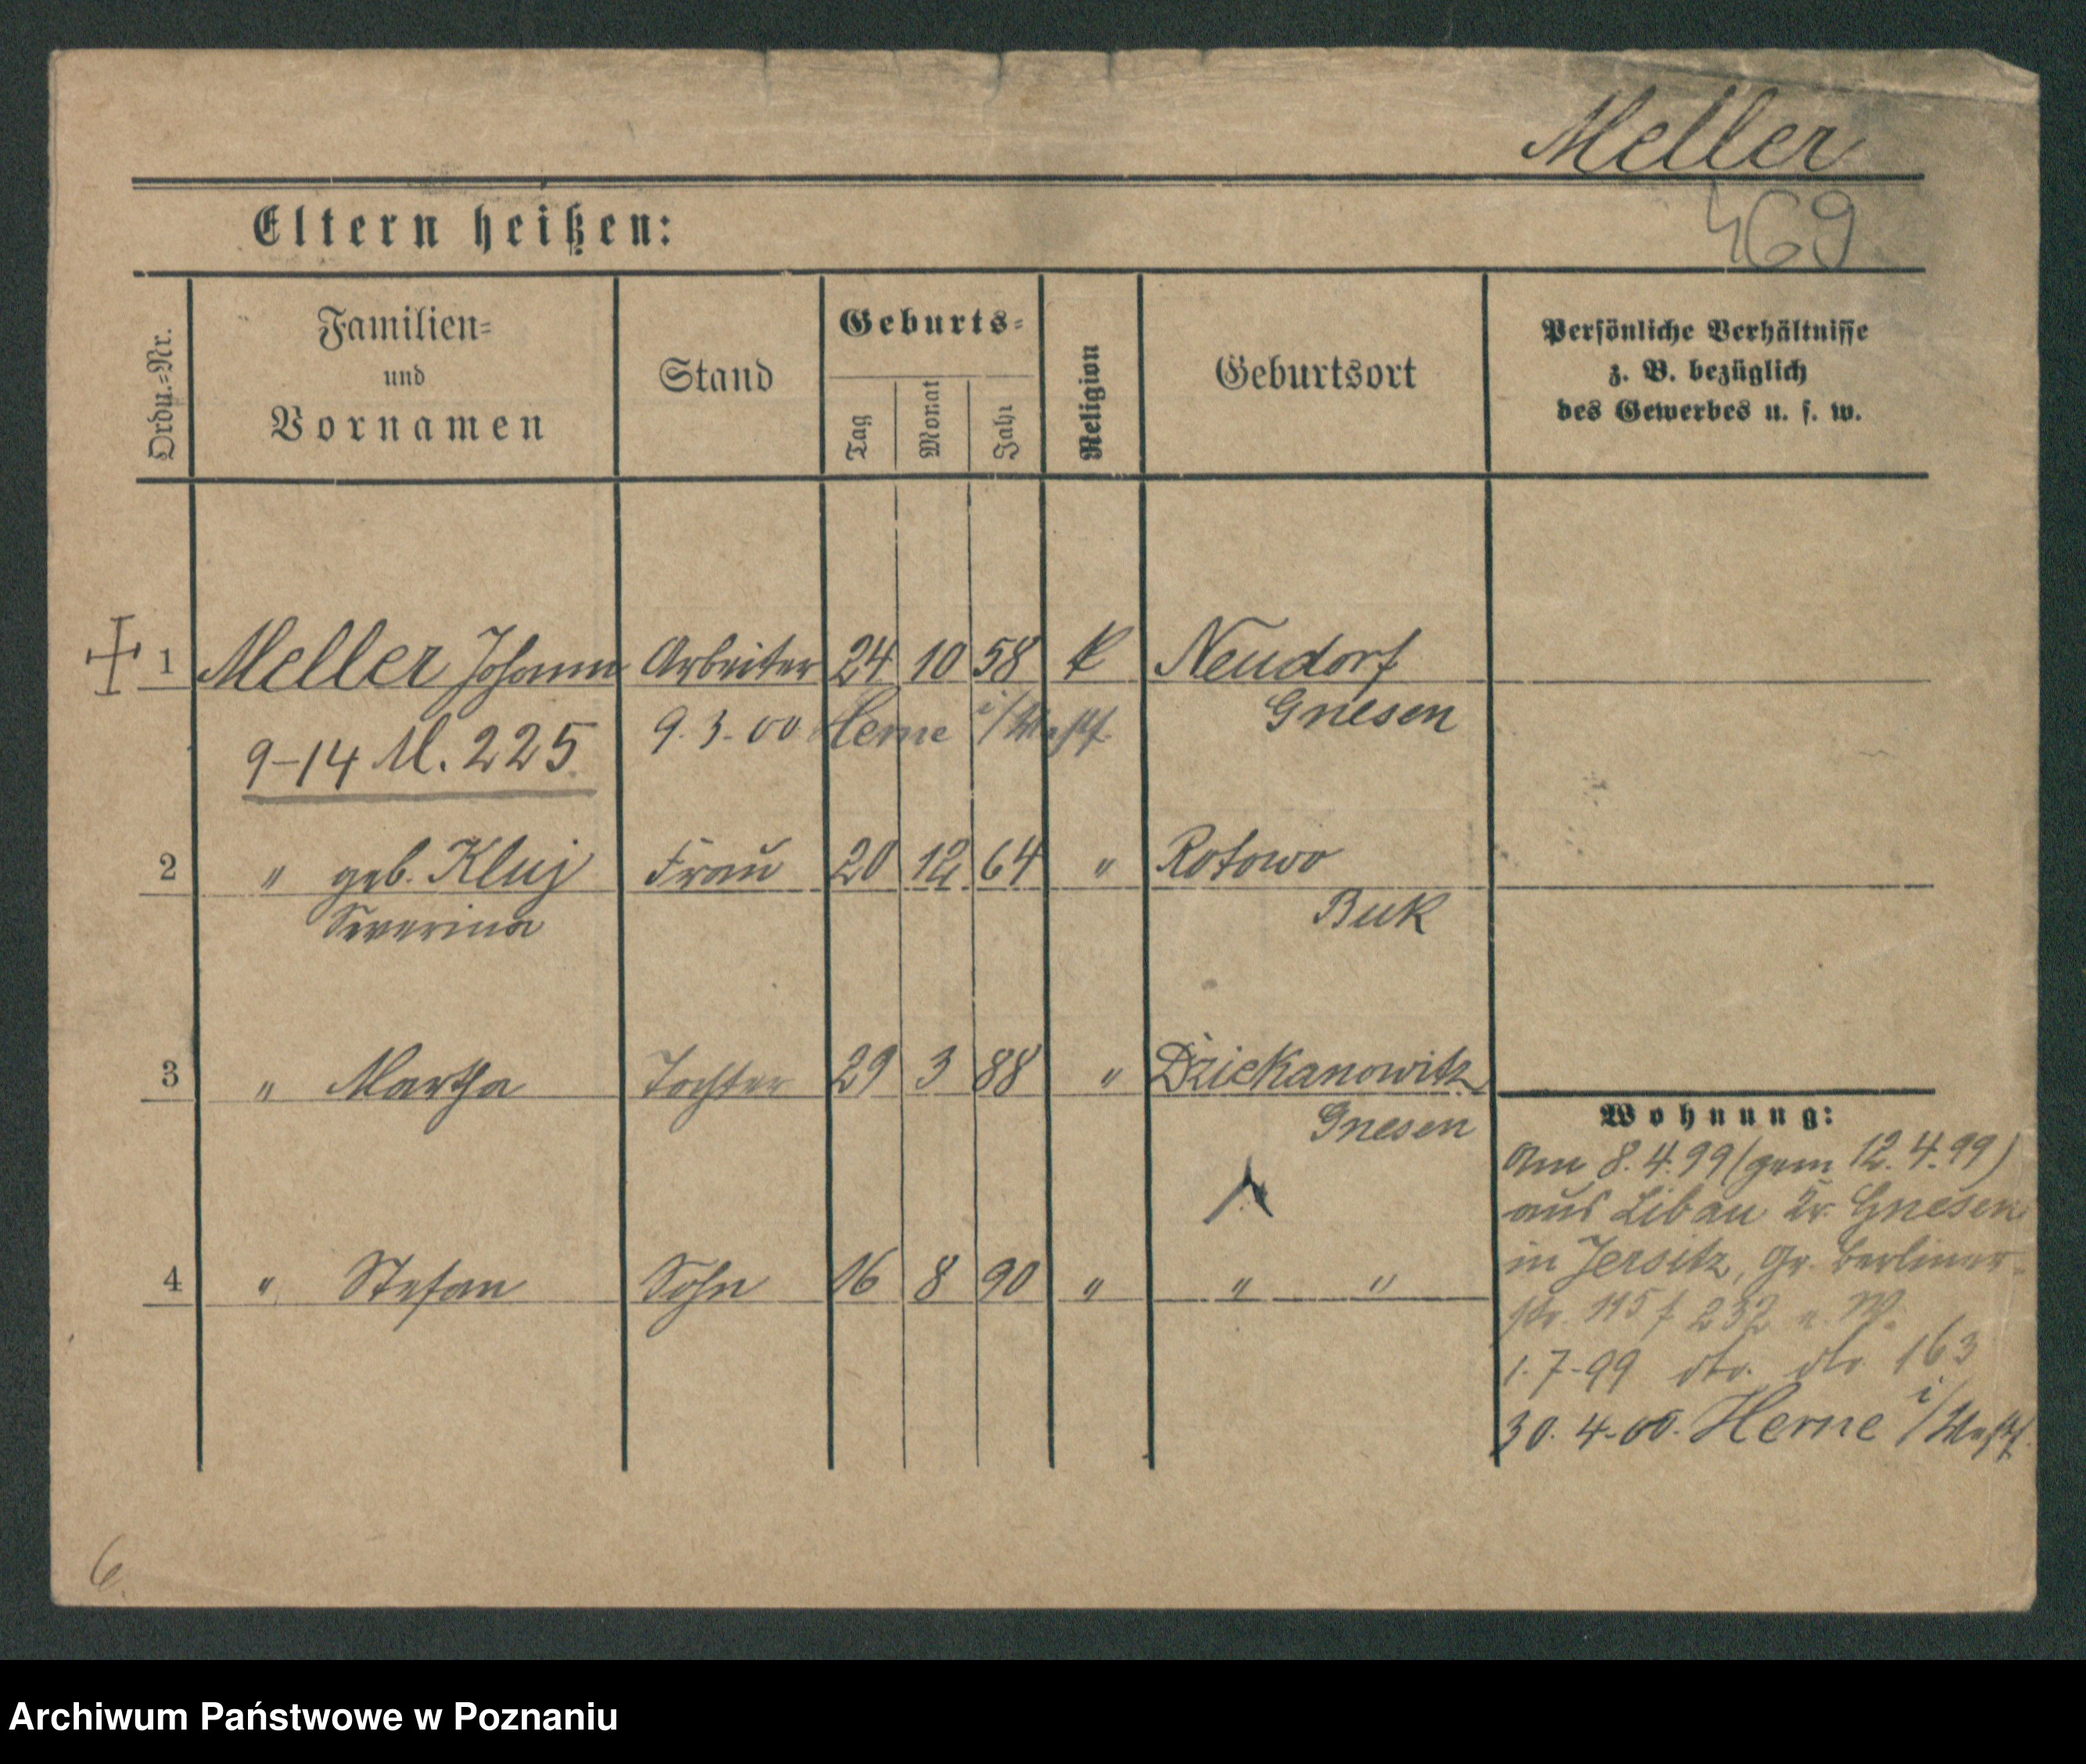 Meller
469
Eltern heißen:
Ordn.-Nr.
Familien-
und
Vornamen
Stand
Geburts-
Tag
Monat
Jahr
Religion
Geburtsort
Persönliche Verhältnisse
z. B. bezüglich
des Gewerbes u. s. w.
1 Meller Johann Arbeiter 24 10 58 k Neudorf
Gnesen
9-14 M. 225 9.3.00 Herne i/Westf.
2 " geb. Kluj Frau 20 12 64 " Rotowo
Severina Buk
3 " Martha Tochter 29 3 88 " Dziekanowitz
Gnesen
4 " Stefan Sohn 16 8 90 " " "
Wohnung:
Am 8.4.99 (gem 12.4.99)
aus Libau Kr. Gnesen
in Jersitz, Gr. Berliner-
str. 115 f 232 a. W.
1.7-99 dto. dto 163
30.4-00. Herne i/Westf.
6.
Archiwum Państwowe w Poznaniu